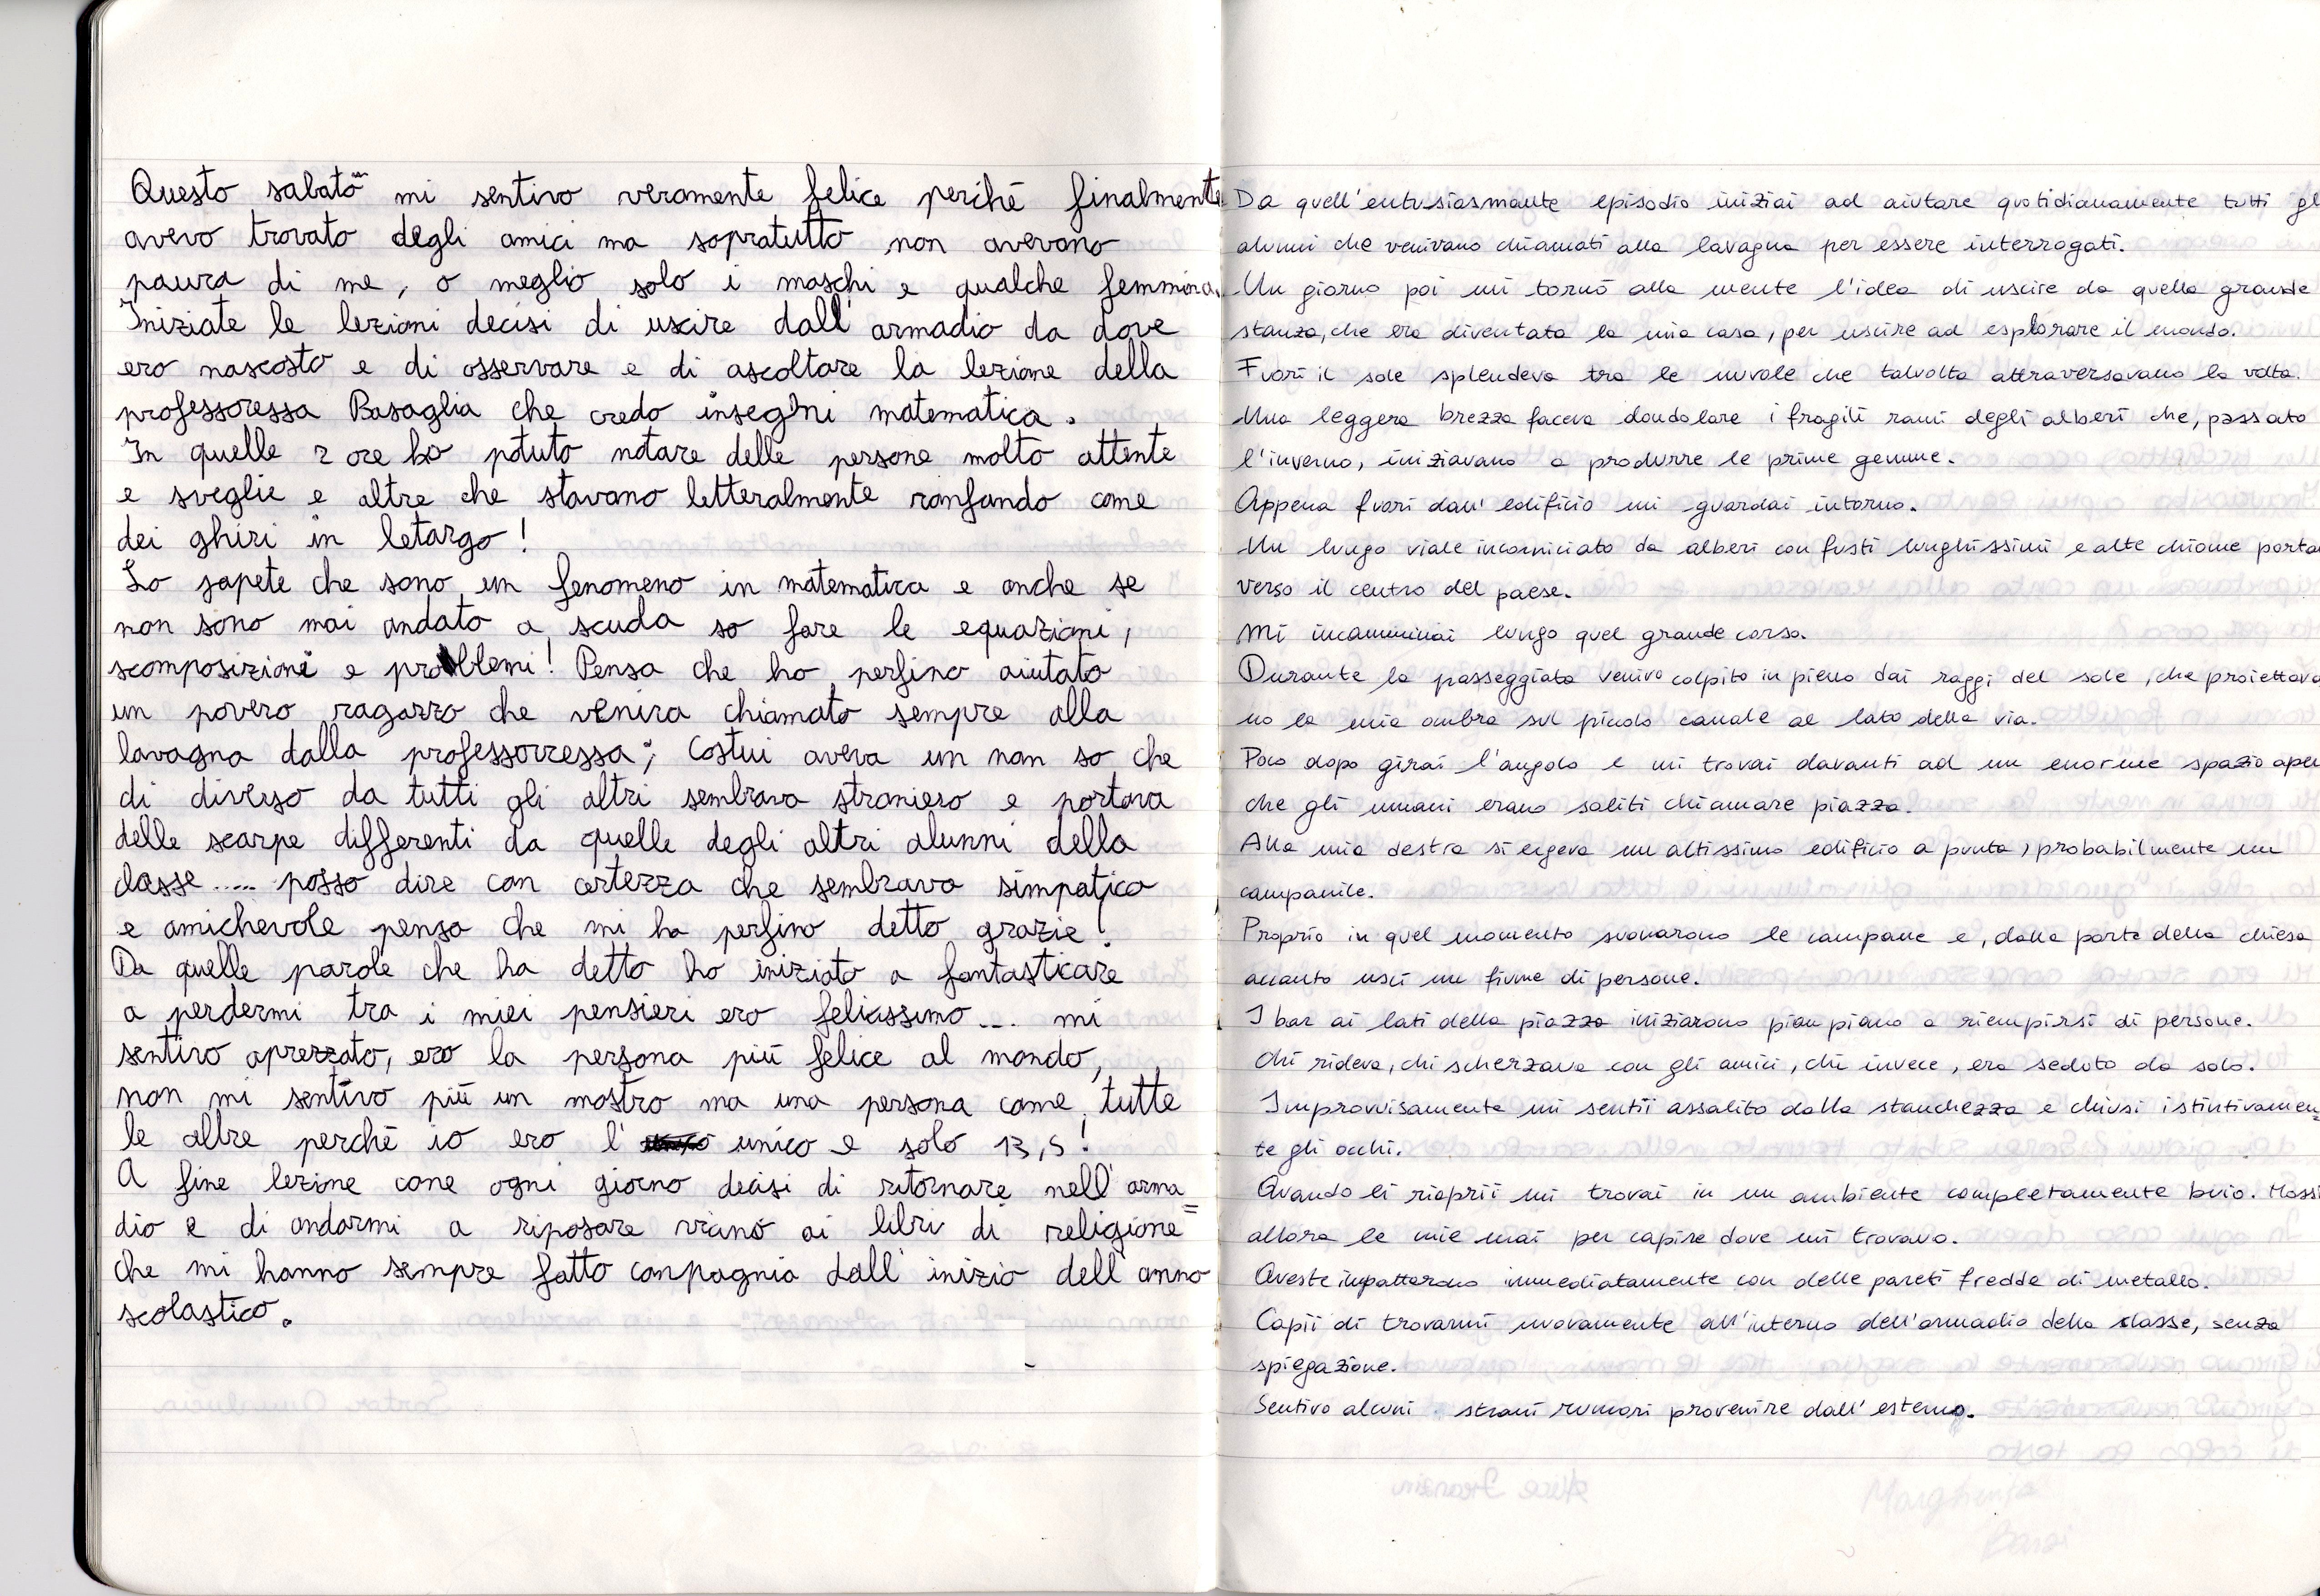 Questo sabato mi sentivo veramente felice perché finalmente
avevo trovato degli amici ma sopratutto non avevano
paura di me, o meglio solo i maschi e qualche femmina.
Iniziate le lezioni decisi di uscire dall'armadio da dove
ero nascosto e di osservare e di ascoltare la lezione della
professoressa Basaglia che credo insegni matematica.
In quelle 2 ore ho potuto notare delle persone molto attente
e sveglie e altre che stavano letteralmente ronfando come
dei ghiri in letargo!
Lo sapete che sono un fenomeno in matematica e anche se
non sono mai andato a scuola so fare le equazioni,
scomposizioni e problemi! Pensa che ho perfino aiutato
un povero ragazzo che veniva chiamato sempre alla
lavagna dalla professorressa; costui aveva un non so che
di diverso da tutti gli altri sembrava straniero e portava
delle scarpe differenti da quelle degli altri alunni della
classe..... posso dire con certezza che sembrava simpatico
e amichevole pensa che mi ha perfino detto grazie!
Da quelle parole che ha detto ho iniziato a fantasticare
a perdermi tra i miei pensieri ero felicissimo.... mi
sentivo aprezzato, ero la persona più felice al mondo,
non mi sentivo più un mostro ma una persona come tutte
le altre perché io ero l' unico e solo 13,5!
A fine lezione come ogni giorno decisi di ritornare nell'arma=
dio e di andarmi a riposare vicino ai libri di religione
che mi hanno sempre fatto conpagnia dall'inizio dell'anno
scolastico.
Da quell'entusiasmante episodio iniziai ad aiutare quotidianamente tutti gl
alunni che venivano chiamati alla lavagna per essere interrogati.
Un giorno poi mi tornò alla mente l'idea di uscire da quella grande
stanza, che era diventata la mia casa, per uscire ad esplorare il mondo.
Fuori il sole splendeva tra le nuvole che talvolta attraversavano la volta.
Una leggera brezza faceva dondolare i fragili rami degli alberi che, passato
l'inverno, iniziavano a produrre le prime gemme.
Appena fuori dall'edificio mi guardai intorno.
Un lungo viale incorniciato da alberi con fusti lunghissimi e alte chiome porta
verso il centro del paese.
Mi incamminai lungo quel grande corso.
Durante la passeggiata venivo colpito in pieno dai raggi del sole, che proiettava
no la mia ombra sul piccolo canale al lato della via.
Poco dopo girai l'angolo e mi trovai davanti ad un enorme spazio aper
che gli umani erano soliti chiamare piazza.
Alla mia destra si ergeva un altissimo edificio a punta, probabilmente un
campanile.
Proprio in quel momento suonarono le campane e, dalla porta della chiesa
accanto uscì un fiume di persone.
I bar ai lati della piazza iniziarono pian piano a riempirsi di persone.
Chi rideva, chi scherzava con gli amici, chi invece, era seduto da solo.
Improvvisamente mi sentii assalito dalla stanchezza e chiusi istintivamen=
te gli occhi.
Quando li riaprii mi trovai in un ambiente completamente buio. Mossi
allora le mie mai per capire dove mi trovavo.
Queste impattarono immediatamente con delle pareti fredde di metallo.
Capii di trovarmi nuovamente all'interno dell'armadio della classe, senza
spiegazione.
Sentivo alcuni strani rumori provenire dall'esterno.